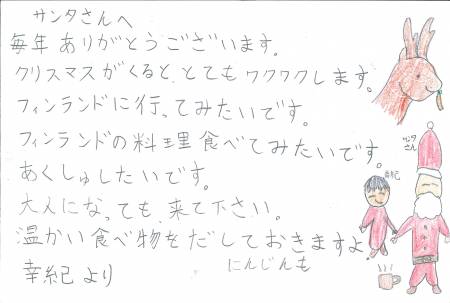 サンタさんへ
毎年ありがとうございます。
クリスマスがくると、とてもワクワクします。
フィンランドに行ってみたいです。
フィンランドの料理食べてみたいです。
サンタさん
あくしゅしたいです。
幸紀
大人になっても、来て下さい。
温かい食べ物をだしておきますよ。
にんじんも
幸紀より